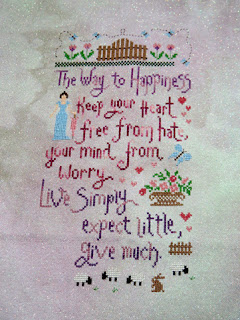 The Way to Happiness
Keep your Heart
free from hate,
your mind from
Worry
Live Simply
expect little,
give much.